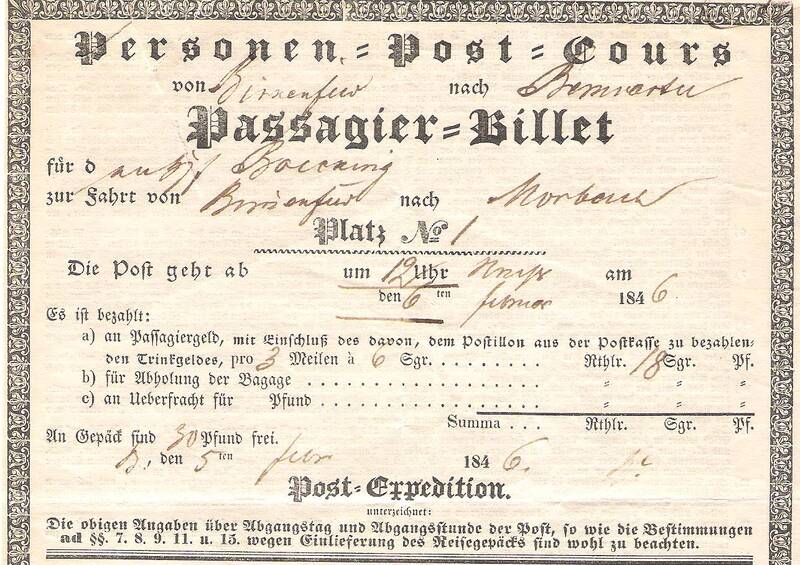 Personen-Post-Cours
von Birkenfeld nach Berncastel
Passagier-Billet
für d Boecking
zur Fahrt von Birkenfeld nach Morbach
Platz No 1
Die Post geht ab um 12 Uhr am
den 6 ten februar 1846
Es ist bezahlt:
a) an Passagiergeld, mit Einschluß des davon, dem Postillon aus der Postkasse zu bezahlen-
den Trinkgeldes, pro 3 Meilen à 6 Sgr. . . . . . . . . . Rthlr. 18 Sgr. Pf.
b) für Abholung der Bagage . . . . . . . . . . . . . . . . . . . . „ „ „
c) an Ueberfracht für Pfund . . . . . . . . . . . . . . . . . „ „ „
Summa . . . Rthlr. Sgr. Pf.
An Gepäck sind 30 Pfund frei.
B, den 5 ten febr 1846.
Post-Expedition.
unterzeichnet:
Die obigen Angaben über Abgangstag und Abgangsstunde der Post, so wie die Bestimmungen
ad §§. 7. 8. 9. 11. u. 15. wegen Einlieferung des Reisegepäcks sind wohl zu beachten.